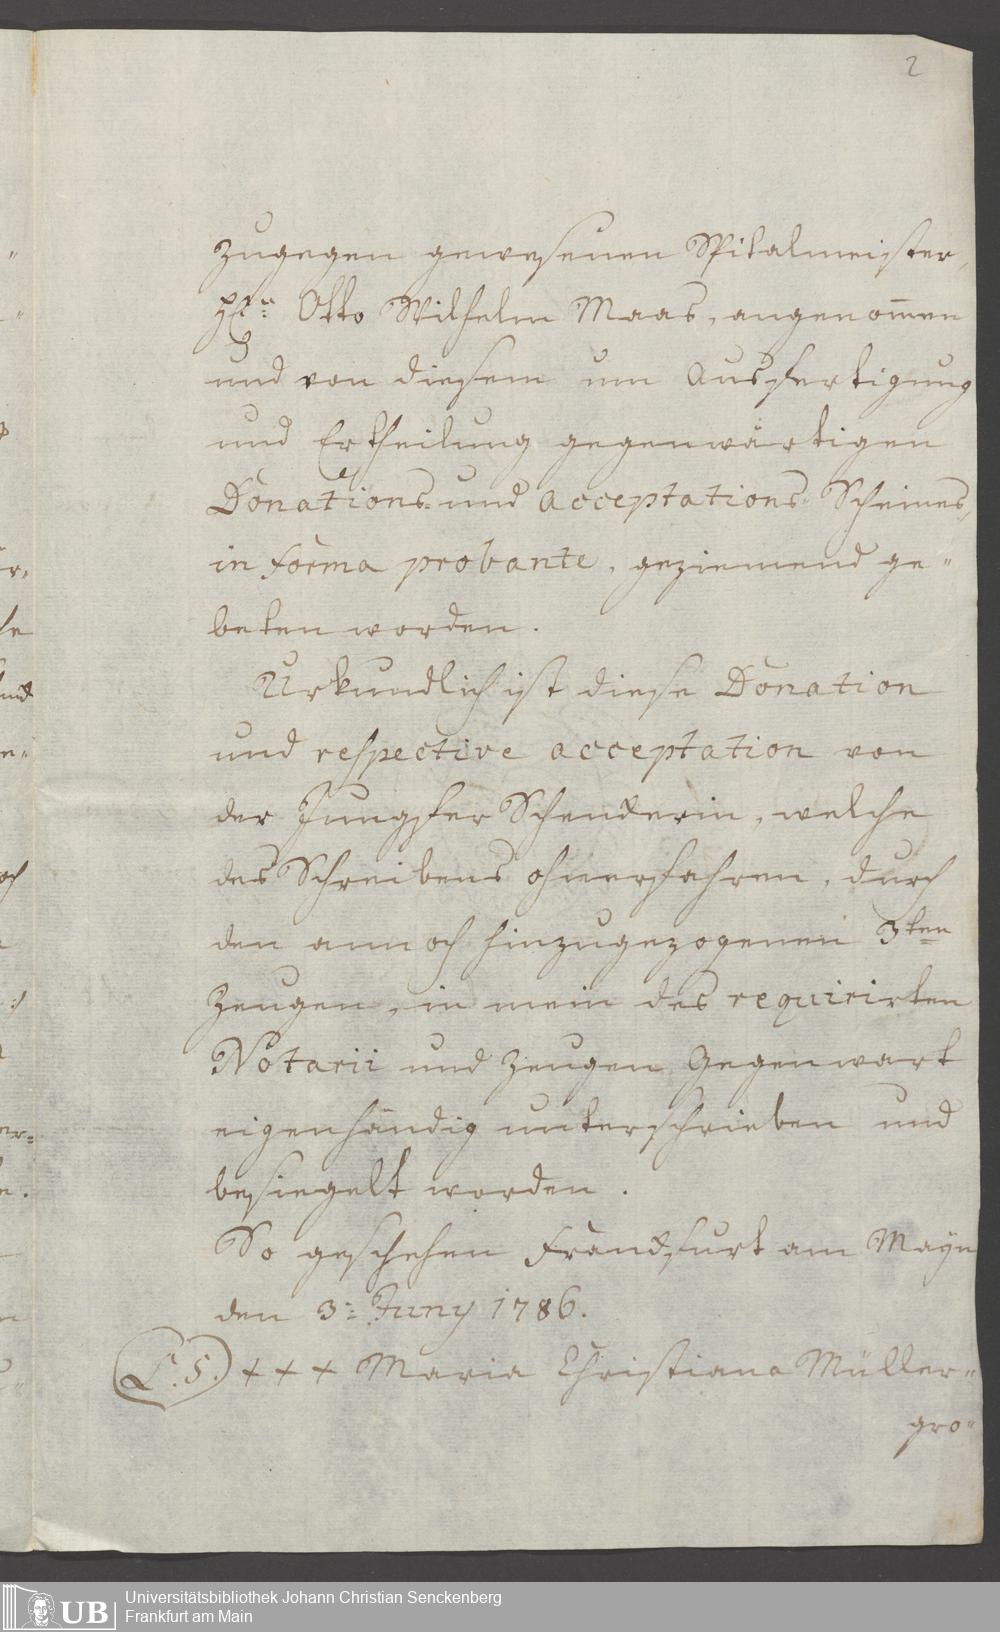 2
zugegen gewesenen Spitalmeister,
H̅n̅: Otto Wilhelm Maas, angenom̅en
und von diesem um Ausfertigung
und Ertheilung gegenwärtigen
Donations- und Acceptations-Scheines,
in forma probante, geziemend ge-
beten worden.
Urkundlich ist diese Donation
und respective acceptation von
der Jungfer Schenckerin, welche
des Schreibens ohnerfahren, durch
den annoch hinzugezogenen 3ten
Zeugen, in mein des requirirten
Notarii und Zeugen Gegenwart
eigenhändig unterschrieben und
besiegelt worden.
So geschehen Franckfurt am Mayn
den 3: Juny 1786.
L.S. + + + Maria Christiana Müller-
gro-
UB
Universitätsbibliothek Johann Christian Senckenberg
Frankfurt am Main